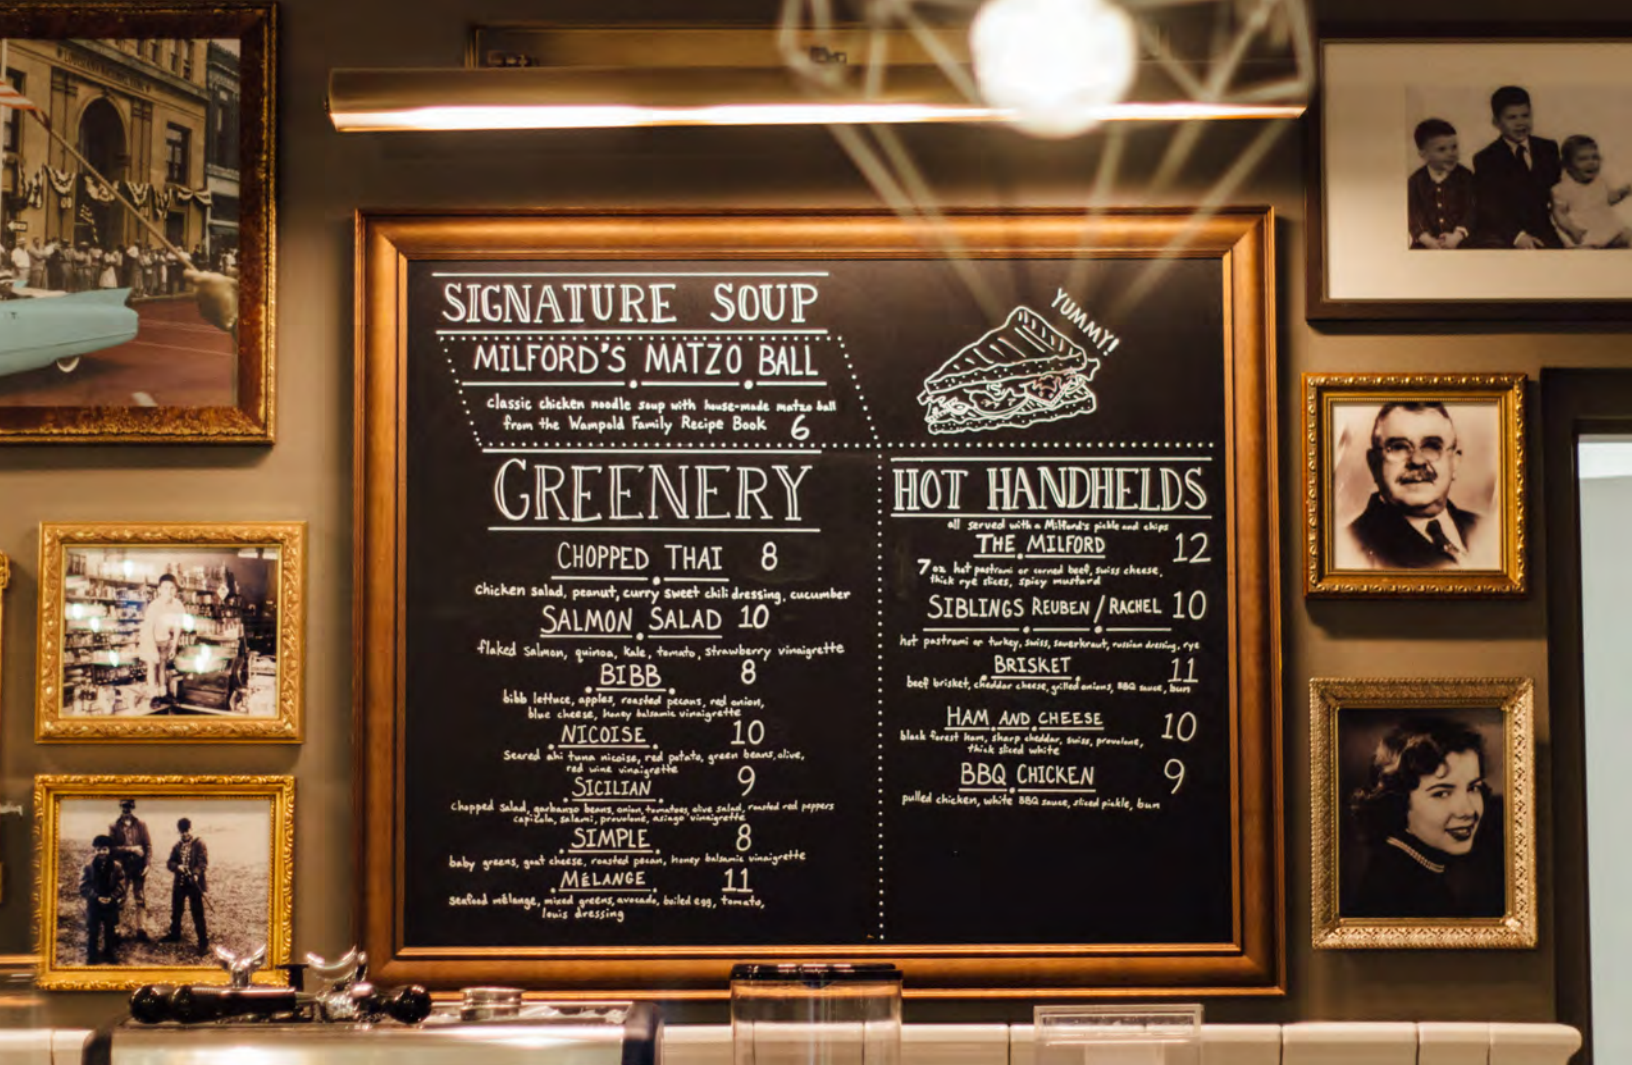 SIGNATURE SOUP
MILFORD'S MATZO BALL
classic chicken noodle soup with house-made matzo ball
from the Wampold Family Recipe Book 6
GREENERY
CHOPPED THAI 8
chicken salad, peanut, curry sweet chili dressing, cucumber
SALMON SALAD 10
flaked salmon, quinoa, kale, tomato, strawberry vinaigrette
BIBB 8
bibb lettuce, apples, roasted pecans, red onion,
blue cheese, honey balsamic vinaigrette
NICOISE 10
Seared ahi tuna nicoise, red potato, green beans, olive,
red wine vinaigrette
SICILIAN 9
chopped salad, garbanzo beans, onion, tomatoes, olive salad, roasted red peppers
capicola, salami, provolone, asiago vinaigrette
SIMPLE 8
baby greens, goat cheese, roasted pecan, honey balsamic vinaigrette
MÉLANGE 11
seafood mélange, mixed greens, avocado, boiled egg, tomato,
louis dressing
YUMMY!
HOT HANDHELDS
all served with a Milford's pickle and chips
THE MILFORD 12
7oz hot pastrami or corned beef, swiss cheese,
thick rye slices, spicy mustard
SIBLINGS REUBEN / RACHEL 10
hot pastrami or turkey, swiss, sauerkraut, russian dressing, rye
BRISKET 11
beef brisket, cheddar cheese, grilled onions, BBQ sauce, bun
HAM AND CHEESE 10
black forest ham, sharp cheddar, swiss, provolone,
thick sliced white
BBQ CHICKEN 9
pulled chicken, white BBQ sauce, sliced pickle, bun